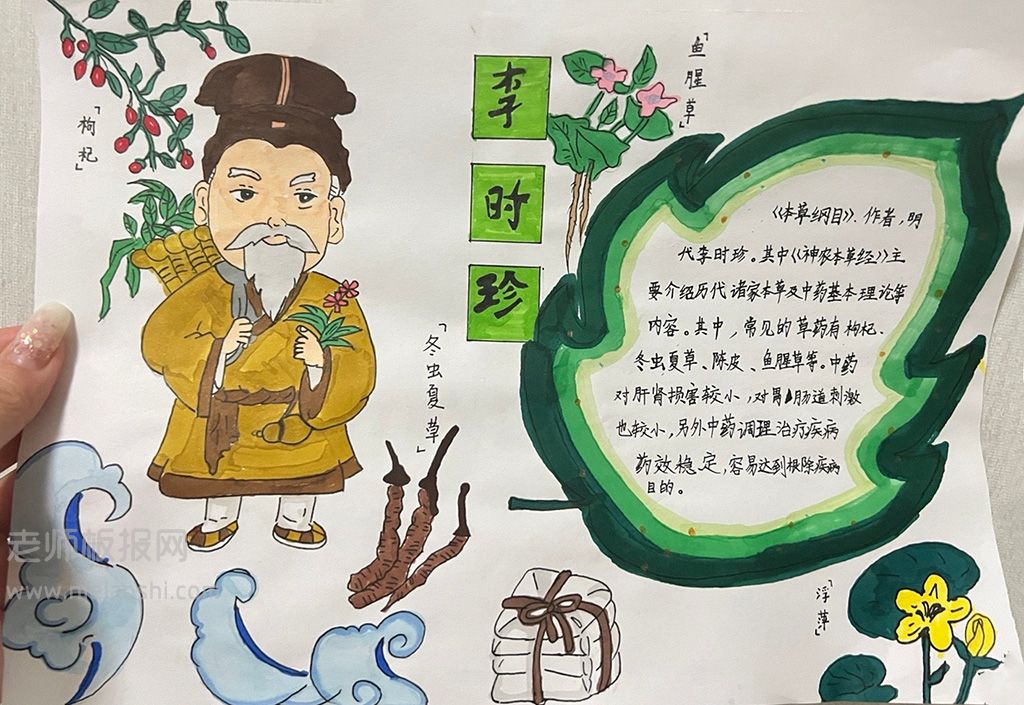 李
时
珍
「枸杞」
「鱼腥草」
「冬虫夏草」
《本草纲目》.作者,明
代李时珍。其中《神农本草经》主
要介绍历代诸家本草及中药基本理论等
内容。其中,常见的草药有枸杞.
冬虫夏草、陈皮、鱼腥草等。中药
对肝肾损害较小,对胃肠道刺激
也较小,另外中药调理治疗疾病
药效稳定,容易达到根除疾病
目的。
「浮萍」
老师板报网